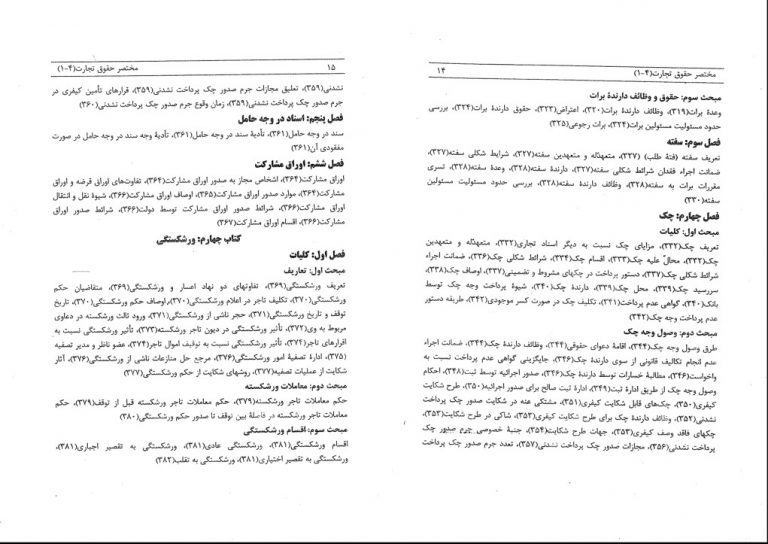 ۱۴ مختصر حقوق تجارت(۴-۱)
مبحث سوم: حقوق و وظائف دارندهٔ برات
وعدهٔ برات(۳۱۹)، وظائف دارندهٔ برات(۳۲۰)، اعتراض(۳۲۲)، حقوق دارندهٔ برات(۳۲۴)، بررسی
حدود مسئولیت مسئولین برات(۳۲۴)، برات رجوعی(۳۲۵)
فصل سوم: سفته
تعریف سفته (فتهٔ طلب) (۳۲۷)، متعهدٌله و متعهدین سفته(۳۲۷)، شرایط شکلی سفته(۳۲۷)،
ضمانت اجراء فقدان شرائط شکلی سفته(۳۲۷)، دارندهٔ سفته(۳۲۸)، وعدهٔ سفته(۳۲۸)، تسری
مقررات برات به سفته(۳۲۸)، وظائف دارندهٔ سفته(۳۲۸)، بررسی حدود مسئولیت مسئولین
سفته(۳۳۰)
فصل چهارم: چک
مبحث اول: کلیات
تعریف چک(۳۳۲)، مزایای چک نسبت به دیگر اسناد تجاری(۳۳۲)، متعهدٌله و متعهدین
چک(۳۳۲)، محالٌ علیه چک(۳۳۳)، اقسام چک(۳۳۴)، شرائط شکلی چک(۳۳۶)، ضمانت اجراء
شرائط شکلی چک(۳۳۷)، دستور پرداخت در چکهای مشروط و تضمینی(۳۳۷)، اوصاف چک(۳۳۸)،
سررسید چک(۳۳۹)، محل چک(۳۳۹)، دارندهٔ چک(۳۴۰)، شیوهٔ پرداخت وجه چک توسط
بانک(۳۴۰)، گواهی عدم پرداخت(۳۴۱)، تکلیف چک در صورت کسر موجودی(۳۴۲)، طریقه دستور
عدم پرداخت وجه چک(۳۴۲)
مبحث دوم: وصول وجه چک
طرق وصول وجه چک(۳۴۴)، اقامهٔ دعوای حقوقی(۳۴۴)، وظائف دارندهٔ چک(۳۴۴)، ضمانت اجراء
عدم انجام تکالیف قانونی از سوی دارندهٔ چک(۳۴۶)، جایگزینی گواهی عدم پرداخت نسبت به
واخواست(۳۴۶)، مطالبهٔ خسارات توسط دارندهٔ چک(۳۴۶)، صدور اجرائیه توسط ثبت(۳۴۸)، احکام
وصول وجه چک از طریق ادارهٔ ثبت(۳۴۹)، ادارهٔ ثبت صالح برای صدور اجرائیه(۳۵۰)، طرح شکایت
کیفری(۳۵۰)، چک‌های قابل شکایت کیفری(۳۵۱)، مشتکی عنه در شکایت صدور چک پرداخت
نشدنی(۳۵۲)، وظائف دارندهٔ چک برای طرح شکایت کیفری(۳۵۳)، شاکی در طرح شکایت(۳۵۳)،
چکهای فاقد وصف کیفری(۳۵۳)، جهات طرح شکایت(۳۵۴)، جنبهٔ خصوصی جرم صدور چک
پرداخت نشدنی(۳۵۶)، مجازات صدور چک پرداخت نشدنی(۳۵۷)، تعدد جرم صدور چک پرداخت
۱۵ مختصر حقوق تجارت(۴-۱)
نشدنی(۳۵۹)، تعلیق مجازات جرم صدور چک پرداخت نشدنی(۳۵۹)، قرارهای تأمین کیفری در
جرم صدور چک پرداخت نشدنی(۳۵۹)، زمان وقوع جرم صدور چک پرداخت نشدنی(۳۶۰)
فصل پنجم: اسناد در وجه حامل
سند در وجه حامل(۳۶۱)، تأدیهٔ سند در وجه حامل(۳۶۱)، تأدیهٔ وجه سند در وجه حامل در صورت
مفقودی آن(۳۶۱)
فصل ششم: اوراق مشارکت
اوراق مشارکت(۳۶۴)، اشخاص مجاز به صدور اوراق مشارکت(۳۶۴)، تفاوت‌های اوراق قرضه و اوراق
مشارکت(۳۶۴)، موارد صدور اوراق مشارکت(۳۶۵)، اوصاف اوراق مشارکت(۳۶۶)، شیوهٔ نقل و انتقال
اوراق مشارکت(۳۶۶)، شرائط صدور اوراق مشارکت توسط دولت(۳۶۶)، شرائط صدور اوراق
مشارکت(۳۶۶)، اقسام اوراق مشارکت(۳۶۷)
کتاب چهارم: ورشکستگی
فصل اول: کلیات
مبحث اول: تعاریف
تعریف ورشکستگی(۳۶۹)، تفاوتهای دو نهاد اعسار و ورشکستگی(۳۶۹)، متقاضیان حکم
ورشکستگی(۳۷۰)، تکلیف تاجر در اعلام ورشکستگی(۳۷۰)، اوصاف حکم ورشکستگی(۳۷۰)، تاریخ
توقف و تاریخ ورشکستگی(۳۷۱)، حجر ناشی از ورشکستگی(۳۷۱)، ورود ثالث ورشکسته در دعاوی
مربوط به وی(۳۷۲)، تأثیر ورشکستگی در دیون تاجر ورشکسته(۳۷۳)، تأثیر ورشکستگی نسبت به
قرارهای تاجر(۳۷۴)، تأثیر ورشکستگی نسبت به توقیف اموال تاجر(۳۷۴)، عضو ناظر و مدیر تصفیه
(۳۷۵)، ادارهٔ تصفیهٔ امور ورشکستگی(۳۷۶)، مرجع حل منازعات ناشی از ورشکستگی(۳۷۶)، آثار
شکایت از عملیات تصفیه(۳۷۷)، روشهای شکایت از حکم ورشکستگی(۳۷۷)
مبحث دوم: معاملات ورشکسته
حکم معاملات تاجر ورشکسته(۳۷۹)، حکم معاملات تاجر ورشکسته قبل از توقف(۳۷۹)، حکم
معاملات تاجر ورشکسته در فاصلهٔ بین توقف تا صدور حکم ورشکستگی(۳۸۰)
مبحث سوم: اقسام ورشکستگی
اقسام ورشکستگی(۳۸۱)، ورشکستگی عادی(۳۸۱)، ورشکستگی به تقصیر اجباری(۳۸۱)،
ورشکستگی به تقصیر اختیاری(۳۸۱)، ورشکستگی به تقلب(۳۸۲)